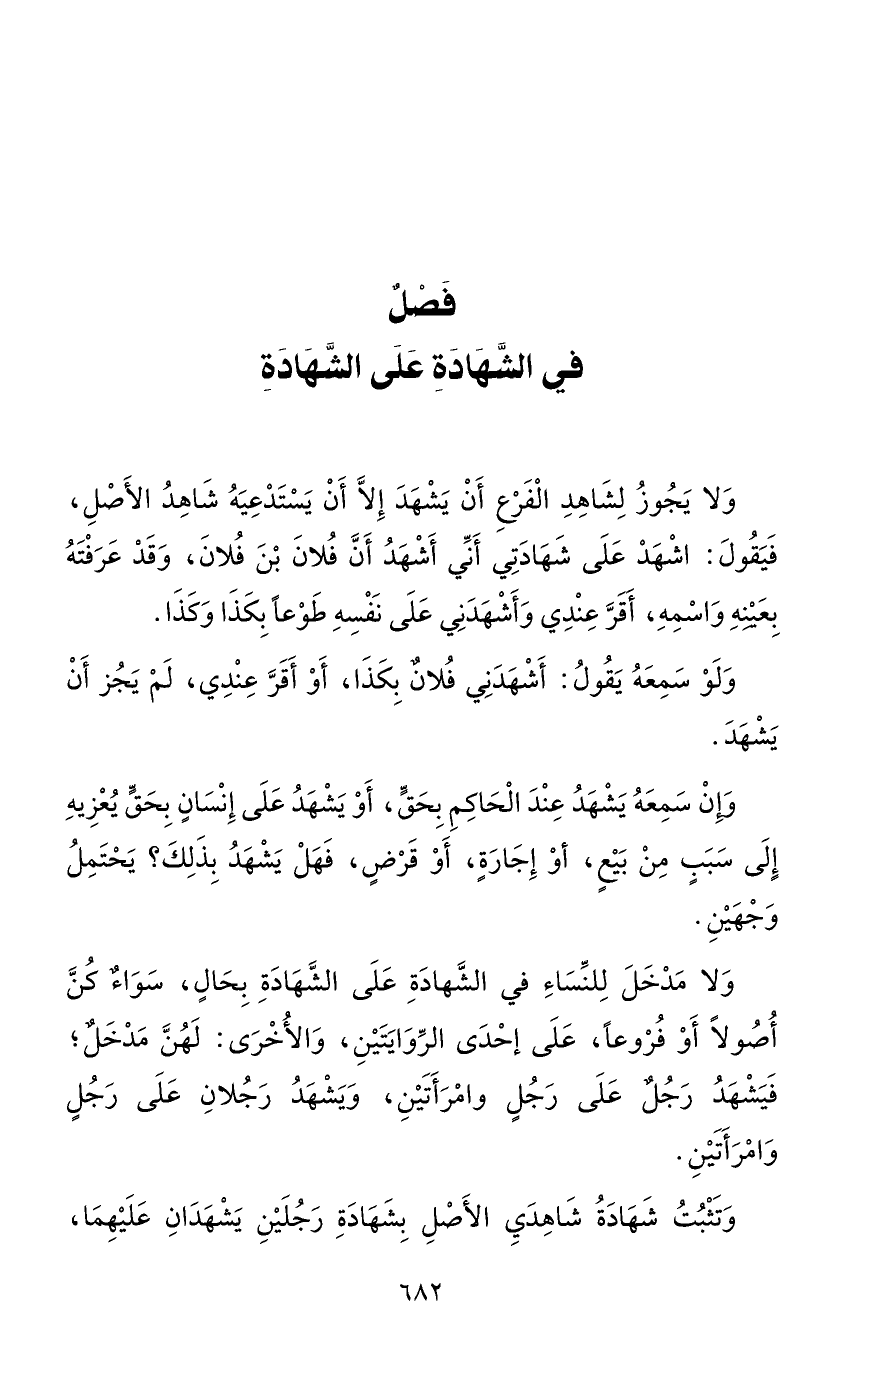 فَصْلٌ
في الشَّهَادَةِ عَلَى الشَّهَادَةِ
وَلا يَجُوزُ لِشَاهِدِ الْفَرْعِ أَنْ يَشْهَدَ إِلاَّ أَنْ يَسْتَدْعِيَهُ شَاهِدُ الأَصْلِ،
فَيَقُولَ: اشْهَدْ عَلَى شَهَادَتِي أَنِّي أَشْهَدُ أَنَّ فُلانَ بْنَ فُلانَ، وَقَدْ عَرَفْتَهُ
بِعَيْنِهِ وَاسْمِهِ، أَقَرَّ عِنْدِي وَأَشْهَدَنِي عَلَى نَفْسِهِ طَوْعاً بِكَذَا وَكَذَا.
وَلَوْ سَمِعَهُ يَقُولُ: أَشْهَدَنِي فُلانٌ بِكَذَا، أَوْ أَقَرَّ عِنْدِي، لَمْ يَجُز أَنْ
يَشْهَدَ.
وَإِنْ سَمِعَهُ يَشْهَدُ عِنْدَ الْحَاكِمِ بِحَقٍّ، أَوْ يَشْهَدُ عَلَى إِنْسَانٍ بِحَقٍّ يُعْزِيهِ
إِلَى سَبَبٍ مِنْ بَيْعٍ، أوْ إِجَارَةٍ، أَوْ قَرْضٍ، فَهَلْ يَشْهَدُ بِذَلِكَ؟ يَحْتَمِلُ
وَجْهَيْنِ.
وَلا مَدْخَلَ لِلنِّسَاءِ في الشَّهادَةِ عَلَى الشَّهَادَةِ بِحَالٍ، سَوَاءٌ كُنَّ
أُصُولاً أَوْ فُرْوعاً، عَلَى إحْدَى الرِّوَايَتَيْنِ، وَالأُخْرَى: لَهُنَّ مَدْخَلٌ؛
فَيَشْهَدُ رَجُلٌ عَلَى رَجُلٍ وامْرَأَتَيْنِ، وَيَشْهَدُ رَجُلانِ عَلَى رَجُلٍ
وَامْرَأَتَيْنِ.
وَتَثْبُتُ شَهَادَةُ شَاهِدَيِ الأَصْلِ بِشَهَادَةِ رَجُلَيْنِ يَشْهَدَانِ عَلَيْهِمَا،
٦٨٢